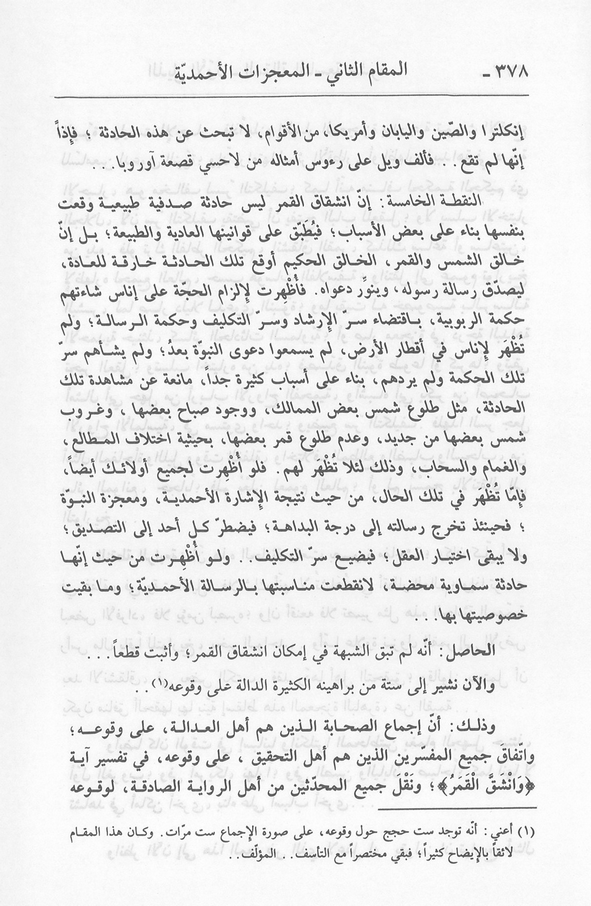 ٣٧٨ - المقام الثاني - المعجزات الأحمديّة
إنكلترا والصّين واليابان وأمريكا، من الأقوام، لا تبحث عن هذه الحادثة ؛ فإذاً
إنّها لم تقع . . فألف ويل على رءوس أمثاله من لاحسي قصعة آوروبا . . .
النقطة الخامسة: إنّ انشقاق القمر ليس حادثة صدفية طبيعية وقعت
بنفسها بناء على بعض الأسباب؛ فيُطبّق على قوانينها العادية والطبيعة؛ بل إنّ
خالق الشمس والقمر، الخالق الحكيم أوقع تلك الحادثة خارقة للعادة،
ليصدّق رسالة رسوله، وينوّر دعواه. فأُظْهِرت لإلزام الحجّة على إناس شاءتهم
حكمة الربوبية، باقتضاء سرّ الإرشاد وسرّ التكليف وحكمة الرسالة؛ ولم
تُظْهَر لإناس في أقطار الأرض، لم يسمعوا دعوى النبوّة بعدُ؛ ولم يشأهم سرّ
تلك الحكمة ولم يردهم، بناء على أسباب كثيرة جداً، مانعة عن مشاهدة تلك
الحادثة، مثل طلوع شمس بعض الممالك، ووجود صباح بعضها ، وغروب
شمس بعضها من جديد، وعدم طلوع قمر بعضها، بحيثية اختلاف المطالع،
والغمام والسحاب، وذلك لئلا تُظْهَر لهم. فلو أظْهِرت لجميع أولائـك أيضاً،
فإمّا تُظْهَر في تلك الحال، من حيث نتيجة الإشارة الأحمدية، ومعجزة النبـوّة
؛ فحينئذ تخرج رسالته إلى درجة البداهة؛ فيضطرّ كل أحد إلى التصديق؛
ولا يبقى اختيار العقل؛ فيضيع سرّ التكليف.. ولو أُظْهِرت من حيث إنّها
حادثة سماوية محضة، لانقطعت مناسبتها بالرسالة الأحمديّة؛ وما بقيت
خصوصيتها بها . . .
الحاصل: أنّه لم تبق الشبهة في إمكان انشقاق القمر؛ وأثبت قطعاً . . .
والآن نشير إلى ستة من براهينه الكثيرة الدالة على وقوعه(١) . .
وذلك: أنّ إجماع الصحابة الذين هم أهل العدالة، على وقوعه؛
واتّفاقَ جميع المفسّرين الذين هم أهل التحقيق ، على وقوعه، في تفسير آية
﴿وَانْشَقَّ الْقَمَرُ﴾؛ ونَقْلَ جميع المحدّثين من أهل الرواية الصادقة، لوقوعه
(١) أعني: أنّه توجد ست حجج حول وقوعه، على صورة الإجماع ست مرّات. وكان هذا المقام
لائقاً بالإيضاح كثيراً؛ فبقي مختصراً مع التأسف . . المؤلّف . .